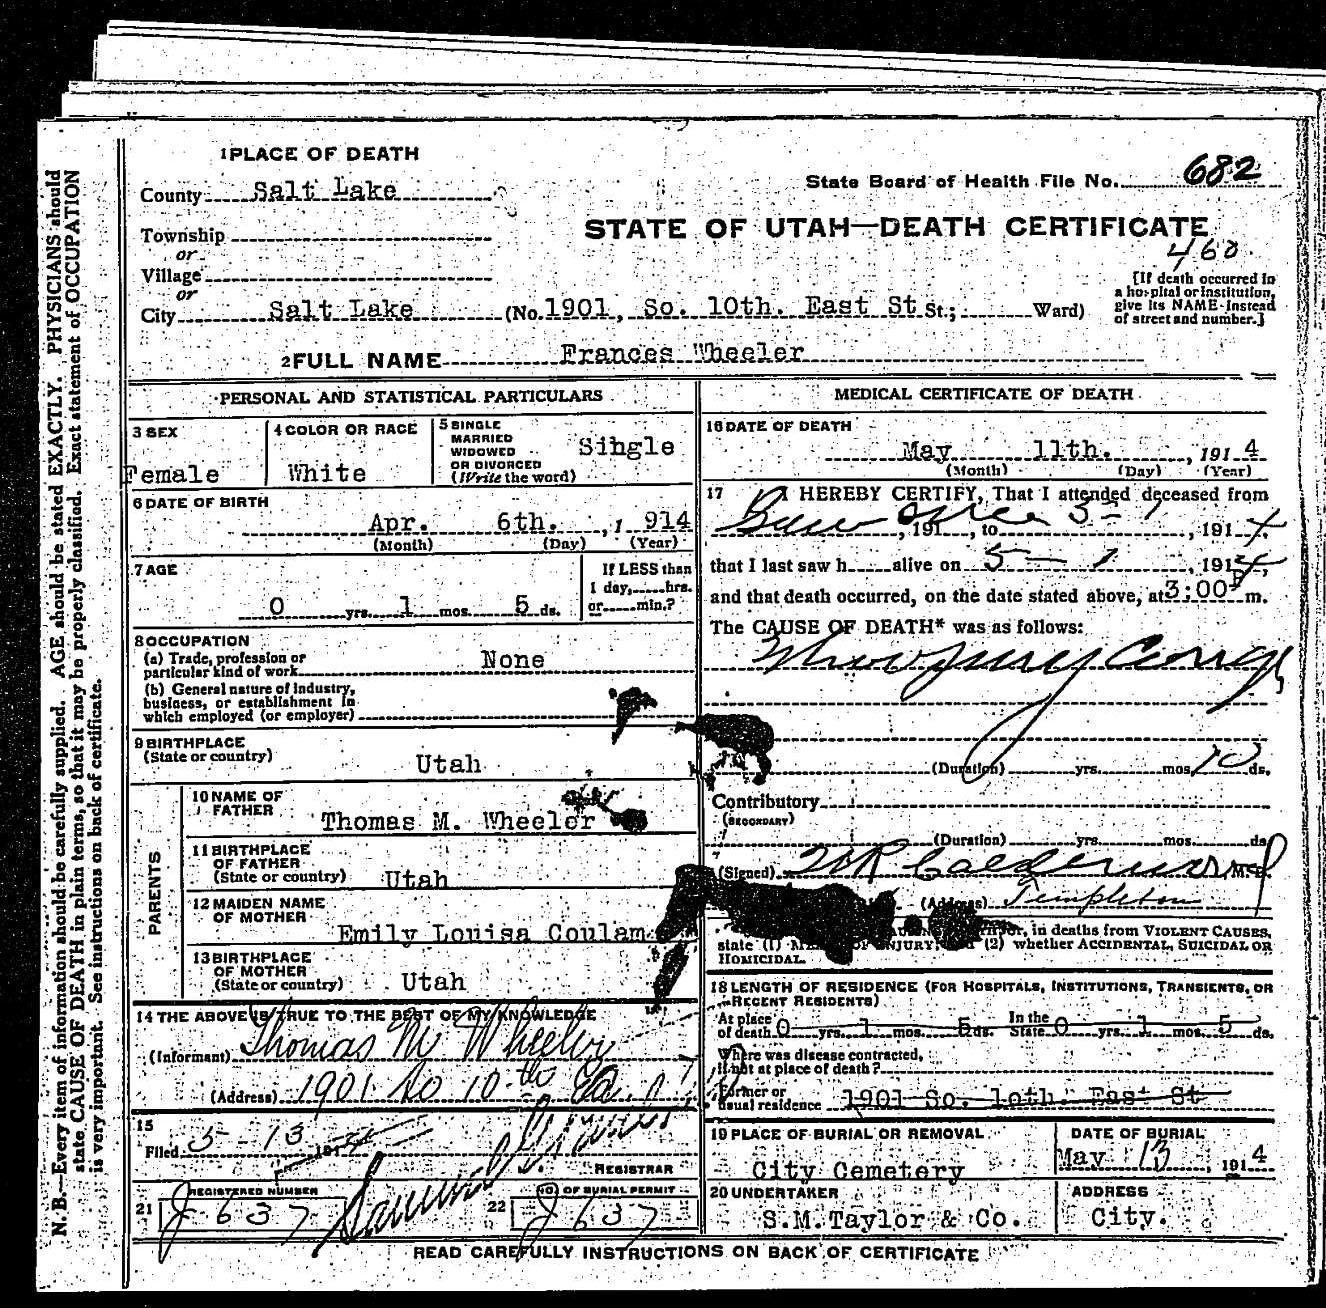 1 PLACE OF DEATH
County Salt Lake
State Board of Health File No. 682
STATE OF UTAH—DEATH CERTIFICATE
460
Township
or
Village
or
City Salt Lake (No. 1901, So. 10th. East St St.; Ward)
[If death occurred in
a hospital or institution,
give its NAME instead
of street and number.]
2 FULL NAME Frances Wheeler
PERSONAL AND STATISTICAL PARTICULARS
3 SEX
Female
4 COLOR OR RACE
White
5 SINGLE
MARRIED
WIDOWED
OR DIVORCED
(Write the word)
Single
6 DATE OF BIRTH
Apr. 6th. , 1 914
(Month) (Day) (Year)
7 AGE
0 yrs. 1 mos. 5 ds.
If LESS than
1 day, hrs.
or min.?
8 OCCUPATION
(a) Trade, profession or
particular kind of work None
(b) General nature of industry,
business, or establishment in
which employed (or employer)
9 BIRTHPLACE
(State or country) Utah
PARENTS
10 NAME OF
FATHER
Thomas M. Wheeler
11 BIRTHPLACE
OF FATHER
(State or country) Utah
12 MAIDEN NAME
OF MOTHER
Emily Louisa Coulam
13 BIRTHPLACE
OF MOTHER
(State or country) Utah
14 THE ABOVE IS TRUE TO THE BEST OF MY KNOWLEDGE
(Informant) Thomas M Wheeler
(Address) 1901 So 10th Ea.
15
Filed 5-13 191 4
REGISTRAR
21 REGISTERED NUMBER
J 637
22 NO. OF BURIAL PERMIT
J 637
MEDICAL CERTIFICATE OF DEATH
16 DATE OF DEATH
May 11th. , 191 4
(Month) (Day) (Year)
17 I HEREBY CERTIFY, That I attended deceased from
, 191 , to 5-1 , 191 4,
that I last saw h alive on 5 - 1 , 191 4,
and that death occurred, on the date stated above, at 3:00 P m.
The CAUSE OF DEATH* was as follows:
Whooping Cough
(Duration) yrs. mos. 10 ds.
Contributory
(SECONDARY)
(Duration) yrs. mos. ds.
(Signed) W R Calderwood M. D.
(Address) Templeton
in deaths from VIOLENT CAUSES,
state (1) OF INJURY; (2) whether ACCIDENTAL, SUICIDAL OR
HOMICIDAL.
18 LENGTH OF RESIDENCE (FOR HOSPITALS, INSTITUTIONS, TRANSIENTS, OR
RECENT RESIDENTS)
At place
of death 0 yrs. 1 mos. 5 ds. In the
State 0 yrs. 1 mos. 5 ds.
Where was disease contracted,
if not at place of death?
Former or
usual residence 1901 So. 10th. East St
19 PLACE OF BURIAL OR REMOVAL
City Cemetery
DATE OF BURIAL
May 13, 191 4
20 UNDERTAKER
S.M.Taylor & Co.
ADDRESS
City.
READ CAREFULLY INSTRUCTIONS ON BACK OF CERTIFICATE
N. B.—Every item of information should be carefully supplied. AGE should be stated EXACTLY. PHYSICIANS should
state CAUSE OF DEATH in plain terms, so that it may be properly classified. Exact statement of OCCUPATION
is very important. See instructions on back of certificate.